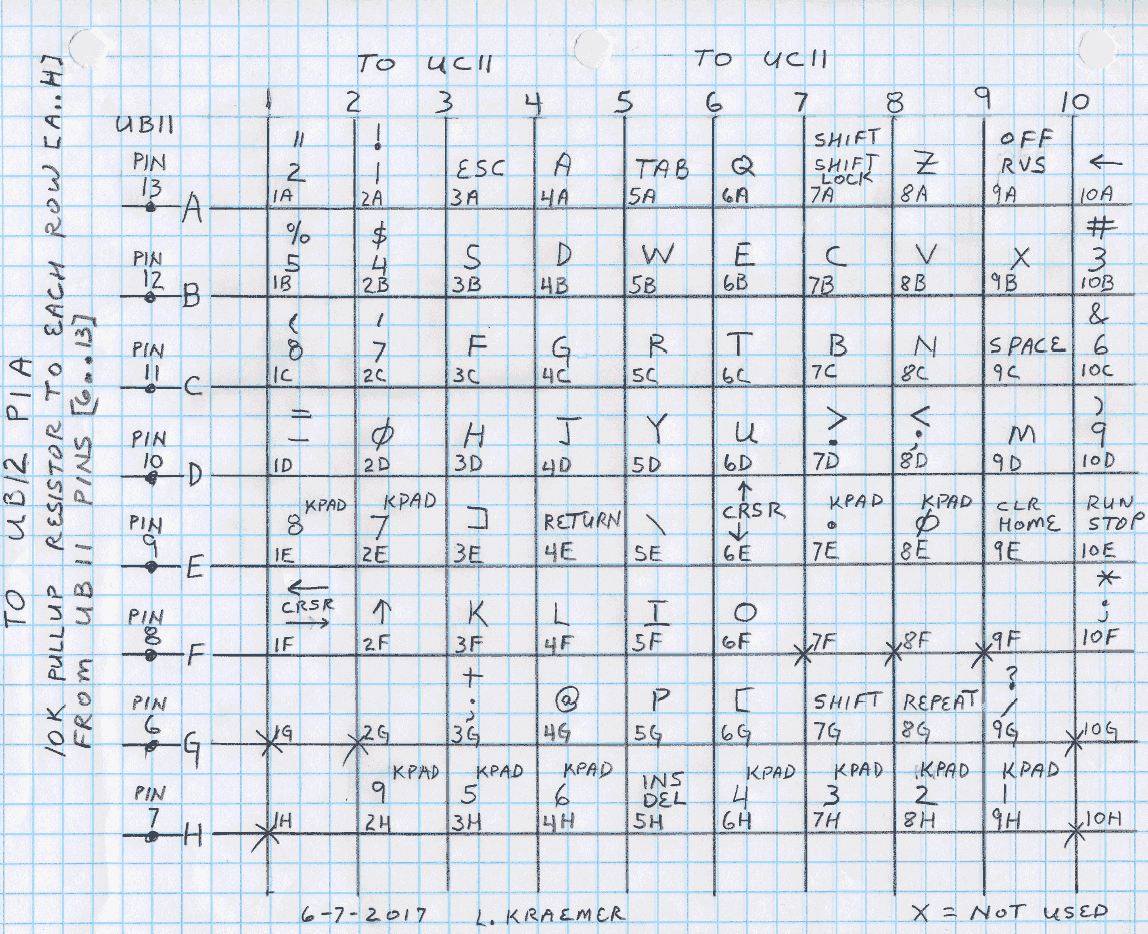 TO UC11 TO UC11
1 2 3 4 5 6 7 8 9 10
UB11
" ! SHIFT OFF
PIN 2 1 ESC A TAB Q SHIFT Z RVS ←
13 LOCK
A 1A 2A 3A 4A 5A 6A 7A 8A 9A 10A
% $ #
PIN 5 4 S D W E C V X 3
12 1B 2B 3B 4B 5B 6B 7B 8B 9B 10B
B
( ' &
PIN 8 7 F G R T B N SPACE 6
11 1C 2C 3C 4C 5C 6C 7C 8C 9C 10C
C
= > < )
PIN - Ø H J Y U . , M 9
10 1D 2D 3D 4D 5D 6D 7D 8D 9D 10D
D
KPAD KPAD ↑ KPAD KPAD CLR RUN
PIN 8 7 ] RETURN \ CRSR . Ø HOME STOP
9 1E 2E 3E 4E 5E ↓ 6E 7E 8E 9E 10E
E
← *
PIN CRSR ↑ K L I O ;
8 → 1F 2F 3F 4F 5F 6F 7F 8F 9F 10F
F
+ ?
PIN : @ P [ SHIFT REPEAT /
6 1G 2G 3G 4G 5G 6G 7G 8G 9G 10G
G
KPAD KPAD KPAD INS KPAD KPAD KPAD KPAD
PIN 9 5 6 DEL 4 3 2 1
7 1H 2H 3H 4H 5H 6H 7H 8H 9H 10H
H
TO UB12 PIA
10K PULLUP RESISTOR TO EACH ROW [A..H]
FROM UB11 PINS [6..13]
6-7-2017 L. KRAEMER X = NOT USED